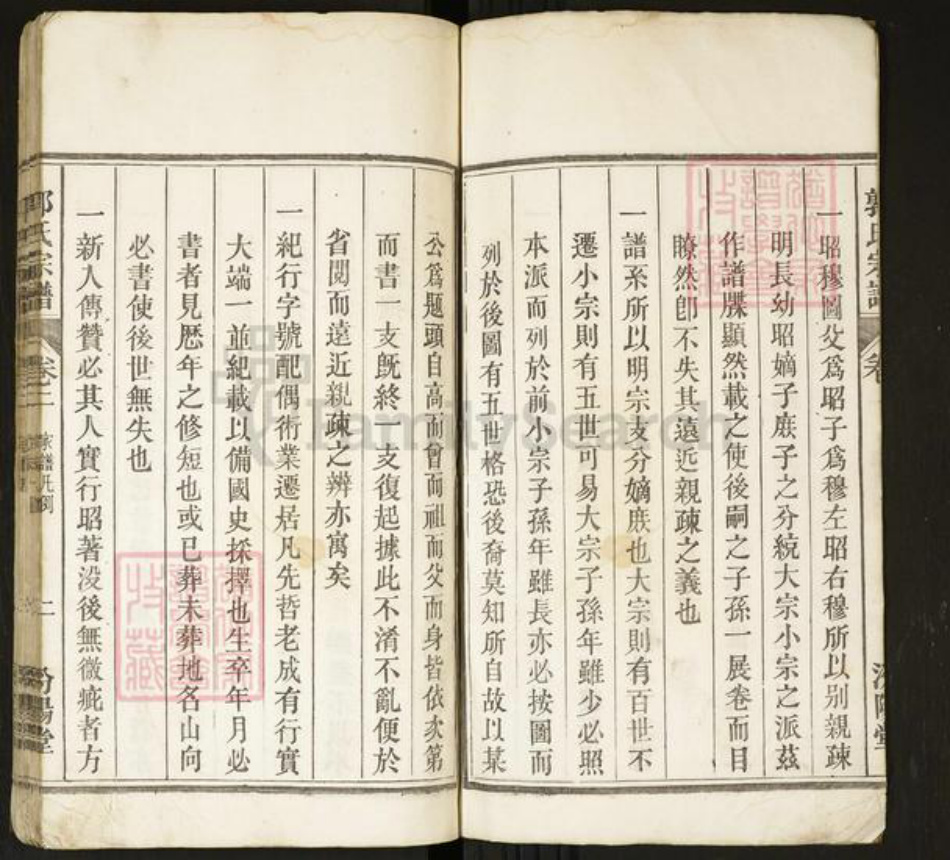 郭氏宗譜
卷
汾陽堂
一昭穆圖父爲昭子爲穆左昭右穆所以别親疎
明長幼昭嫡子庶子之分統大宗小宗之派茲
作譜牒顯然載之使後嗣之子孫一展卷而目
瞭然卽不失其遠近親疎之義也
一譜系所以明宗支分嫡庶也大宗則有百世不
遷小宗則有五世可易大宗子孫年雖少必照
本派而列於前小宗子孫年雖長亦必按圖而
列於後圖有五世格恐後裔莫知所自故以某
公爲題頭自高而曾而祖而父而身皆依次第
而書一支旣終一支復起據此不淆不亂便於
省閱而遠近親疎之辨亦寓矣
一紀行字號配偶術業遷居凡先哲老成有行實
大端一並紀載以備國史採擇也生卒年月必
書者見歷年之修短也或已葬未葬地名山向
必書使後世無失也
一新入傳贊必其人實行昭著没後無微疵者方
郭氏宗譜
卷二
家譜凡例
二
汾陽堂
FamilySearch